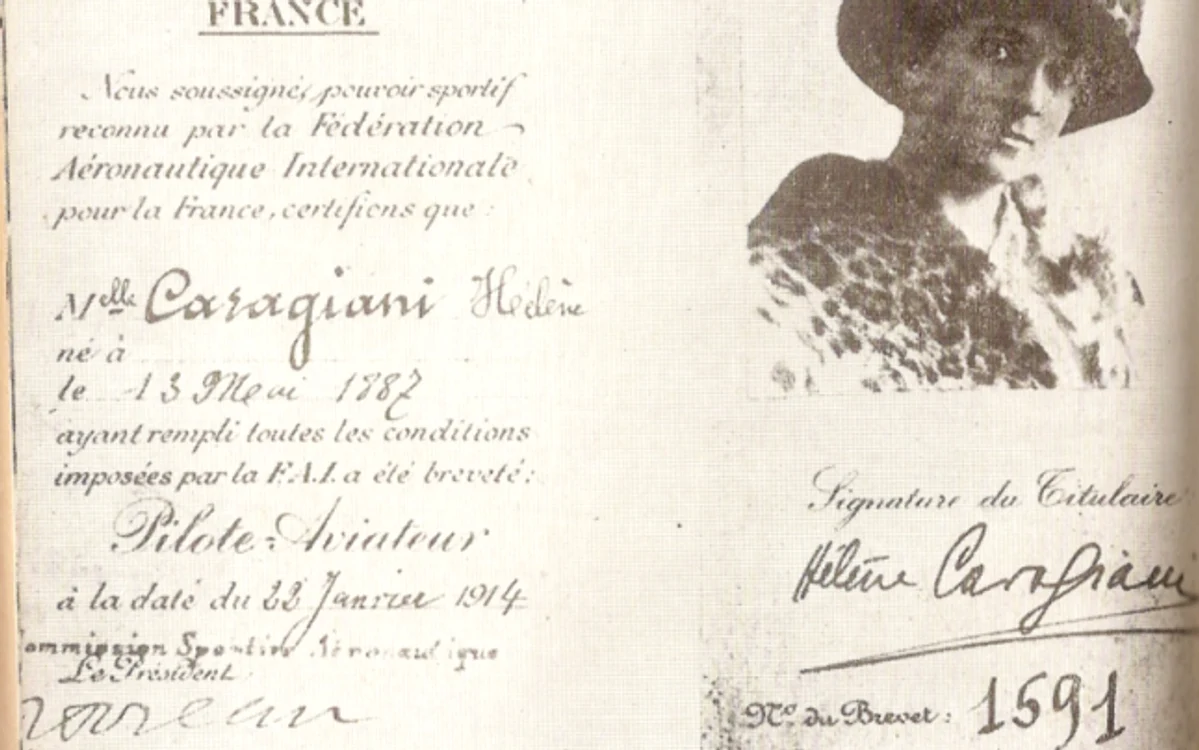 FRANCE
Nous soussignés, pouvoir sportif
reconnu par la Fédération
Aéronautique Internationale
pour la France, certifions que :
Melle Caragiani Hélène
né à
le 13 Mai 1887
ayant rempli toutes les conditions
imposées par la F.A.I. a été breveté :
Pilote-Aviateur
à la date du 22 Janvier 1914
ommission Sportive Aéronautique
Le Président
Signature du Titulaire
Hélène Caragiani
No du Brevet : 1591